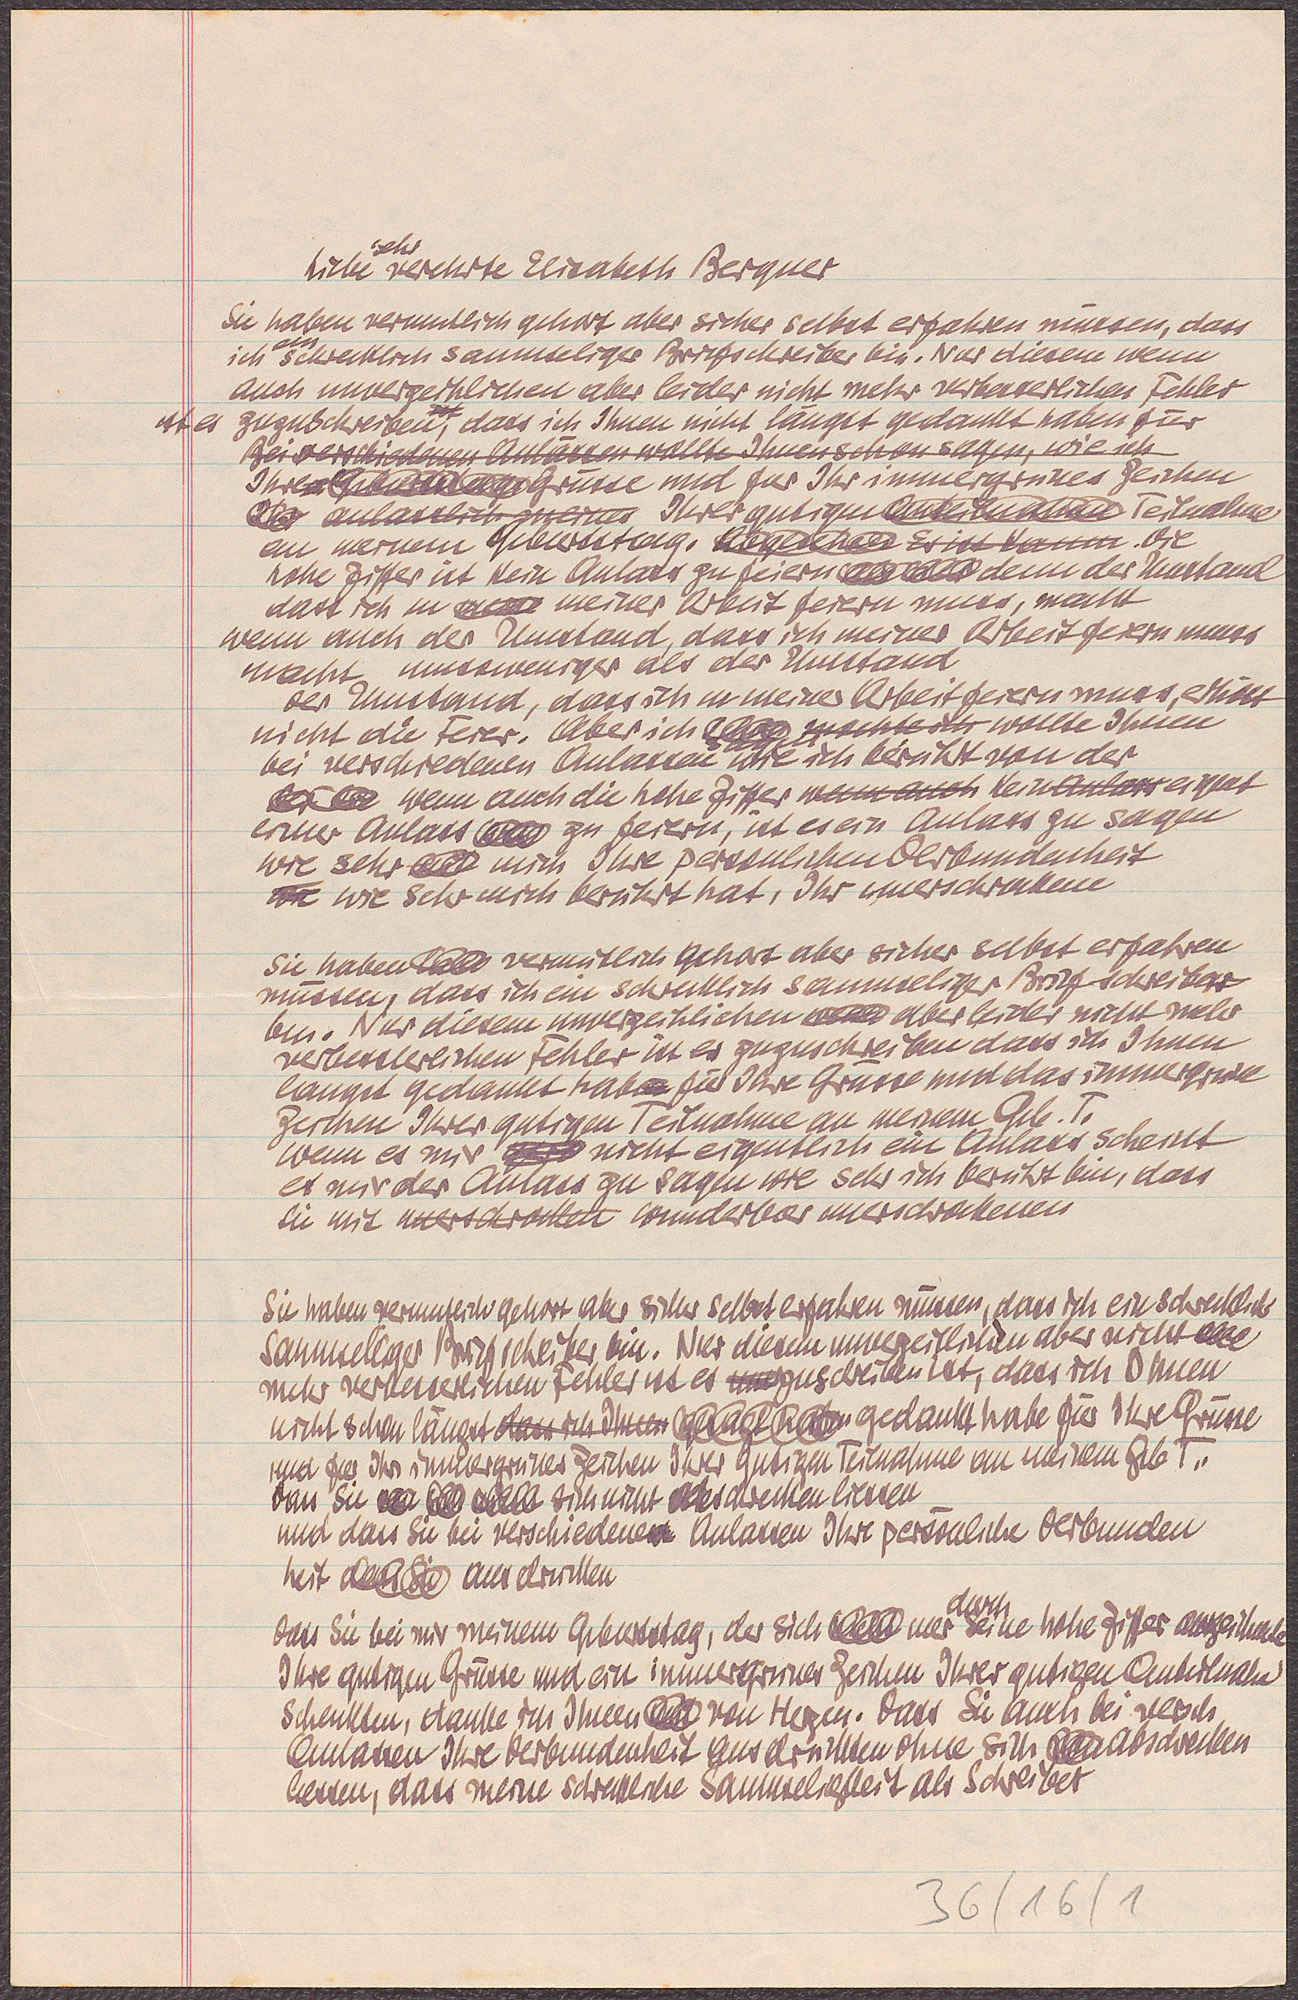 sehr
Liebe verehrte Elisabeth Bergner
Sie haben vermutlich gehört aber sicher selbst erfahren müssen, dass
ich ein schrecklich saumseliger Briefschreiber bin. Nur diesem wenn
auch unverzeihlichen aber leider nicht mehr verbesserlichen Fehler
ist es zuzuschreiben, dass ich Ihnen nicht längst gedankt habe für
Bei verschiedenen Anlässen wollte Ihnen schon sagen, wie ich
Ihren Geburtstags Grüsse und für Ihr immergrünes Zeichen
anlasslich meines Ihrer gutigen Anteilnahme Teilnahme
an meinem Geburtstag. Abgesehen Es ist kaum. Die
hohe Ziffer ist kein Anlass zu feiern denn der Umstand
dass ich in meiner Arbeit feiern muss, macht
wenn auch der Umstand, dass ich meiner Arbeit feiern muss
macht umsoweniger als der Umstand
der Umstand, dass ich in meiner Arbeit feiern muss,
nicht die Feier. Aber ich möchte ich wollte Ihnen
bei verschiedenen Anlassen sagen wie ich berührt von der
wenn auch die hohe Ziffer wenn auch kein Anlass eignet
einer Anlass zu feiern, ist es ein Anlass zu sagen
wie sehr mich Ihre persönlichen Verbundenheit
wie sehr mich berührt hat, Ihr unerschrockene
Sie haben vermutlich gehört aber sicher selbst erfahren
müssen, dass ich ein schrecklich saumseliger Brief schreiber
bin. Nur diesem unverzeihlichen aber leider nicht mehr
verbesserlichen Fehler ist es zuzuschreiben dass ich Ihnen
längst gedankt habe für Ihre Grüsse und das immergrüne
Zeichen Ihrer gutigen Teilnahme an meinem Geb. T.
wenn es mir nicht eigentlich ein Anlass scheint
es mir der Anlass zu sagen wie sehr ich berührt bin, dass
Sie mit unerschrocken wunderbar unerschrockenen
Sie haben vermutlich gehört aber sicher selbst erfahren müssen, dass ich ein schrecklich
saumseliger Briefschreiber bin. Nur diesem unverzeihlichen aber nicht
mehr verbesserlichen Fehler ist es zuzuschreiben ist, dass ich Ihnen
nicht schon längst dass ich Ihnen gesagt haben gedankt habe für Ihre Grüsse
und für Ihr immergrünes Zeichen Ihrer gutigen Teilnahme an meinem Geb T..
Dass Sie sich nicht abschrecken liessen
und dass Sie bei verschiedenen Anlassen Ihre persönliche Verbunden
heit dass Sie ausdrückten
durch
Dass Sie bei mir meinem Geburtstag, der sich nur seine hohe Ziffer auszeichnete
Ihre gutigen Grüsse und ein immergrünes Zeichen Ihrer gutigen Anteilnahme
schenkten, danke ich Ihnen von Herzen. Dass Sie auch bei versch
Anlassen Ihre Verbundenheit ausdrückten ohne sich abschrecken
liessen, dass meine schreckliche Saumseligkeit als Schreiber
36/16/1